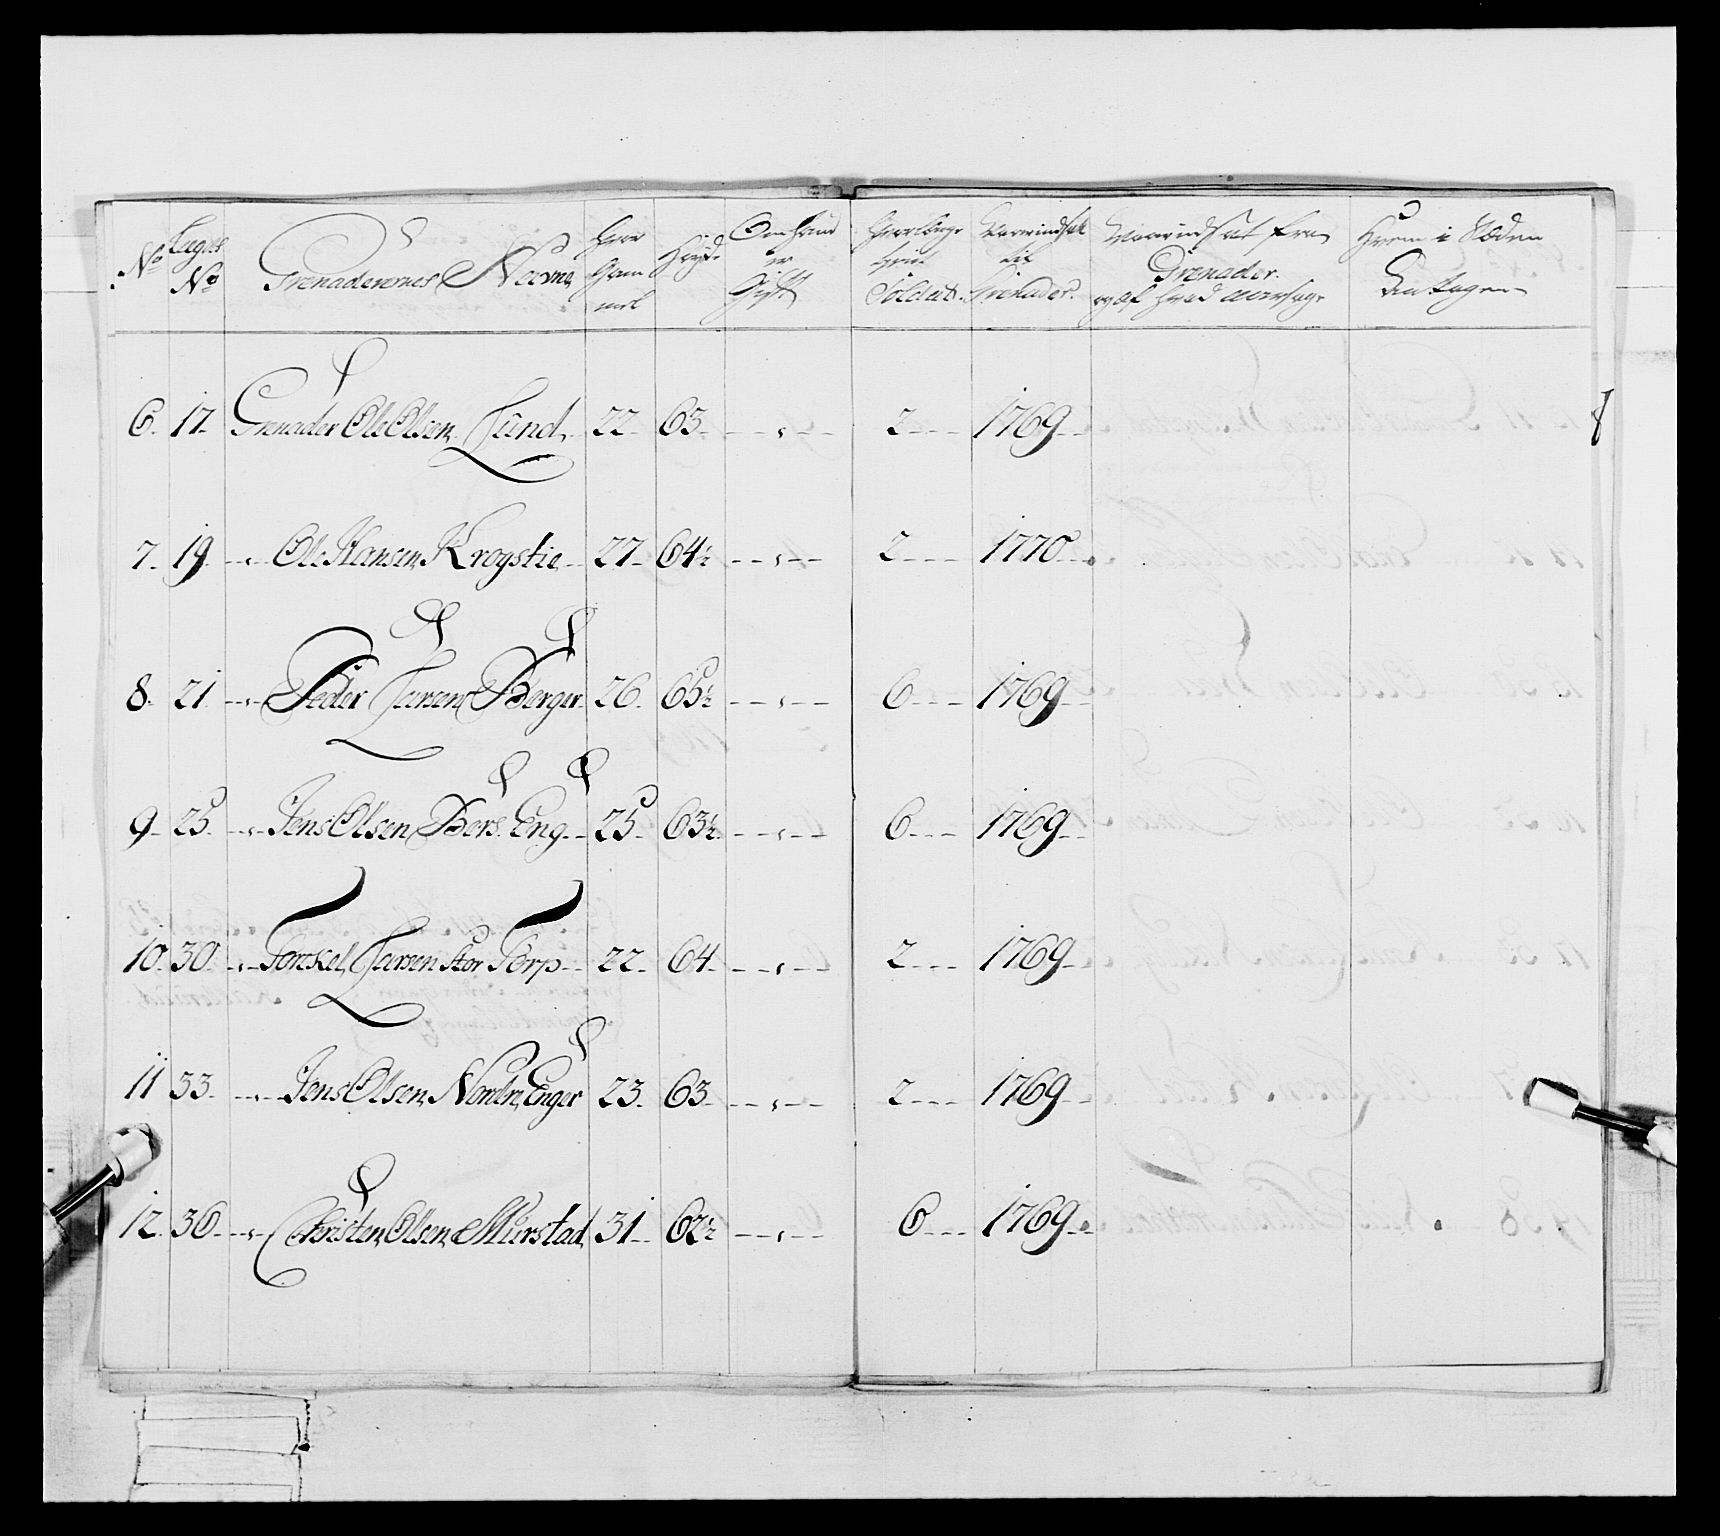 No Lagets No Grenaderernes Nafvne Hvor Gam mel Höyde Om hand er Gift Hvor længe tient Soldat. Grenader. Grenader. og af hvad aarsage Hvem i Stæden Antagen
6. 17. Grenader Ole Olsen Lund. 22. 63. 2 1769
7. 19. Ole Hansen Krogstie 27. 64½ 2 1770
8. 21. Peder Larsen Berger. 26. 65½ 6 1769
9. 25. Jens Olsen Bers. Eng. 25. 63½ 6 1769
10. 30. Torkel Larsen Stor Torp 22. 64. 2 1769
11 33. Jens Olsen Nordre Enger 23. 63. 2 1769
12. 36. Christen Olsen Murstad 31. 62½ 6 1769